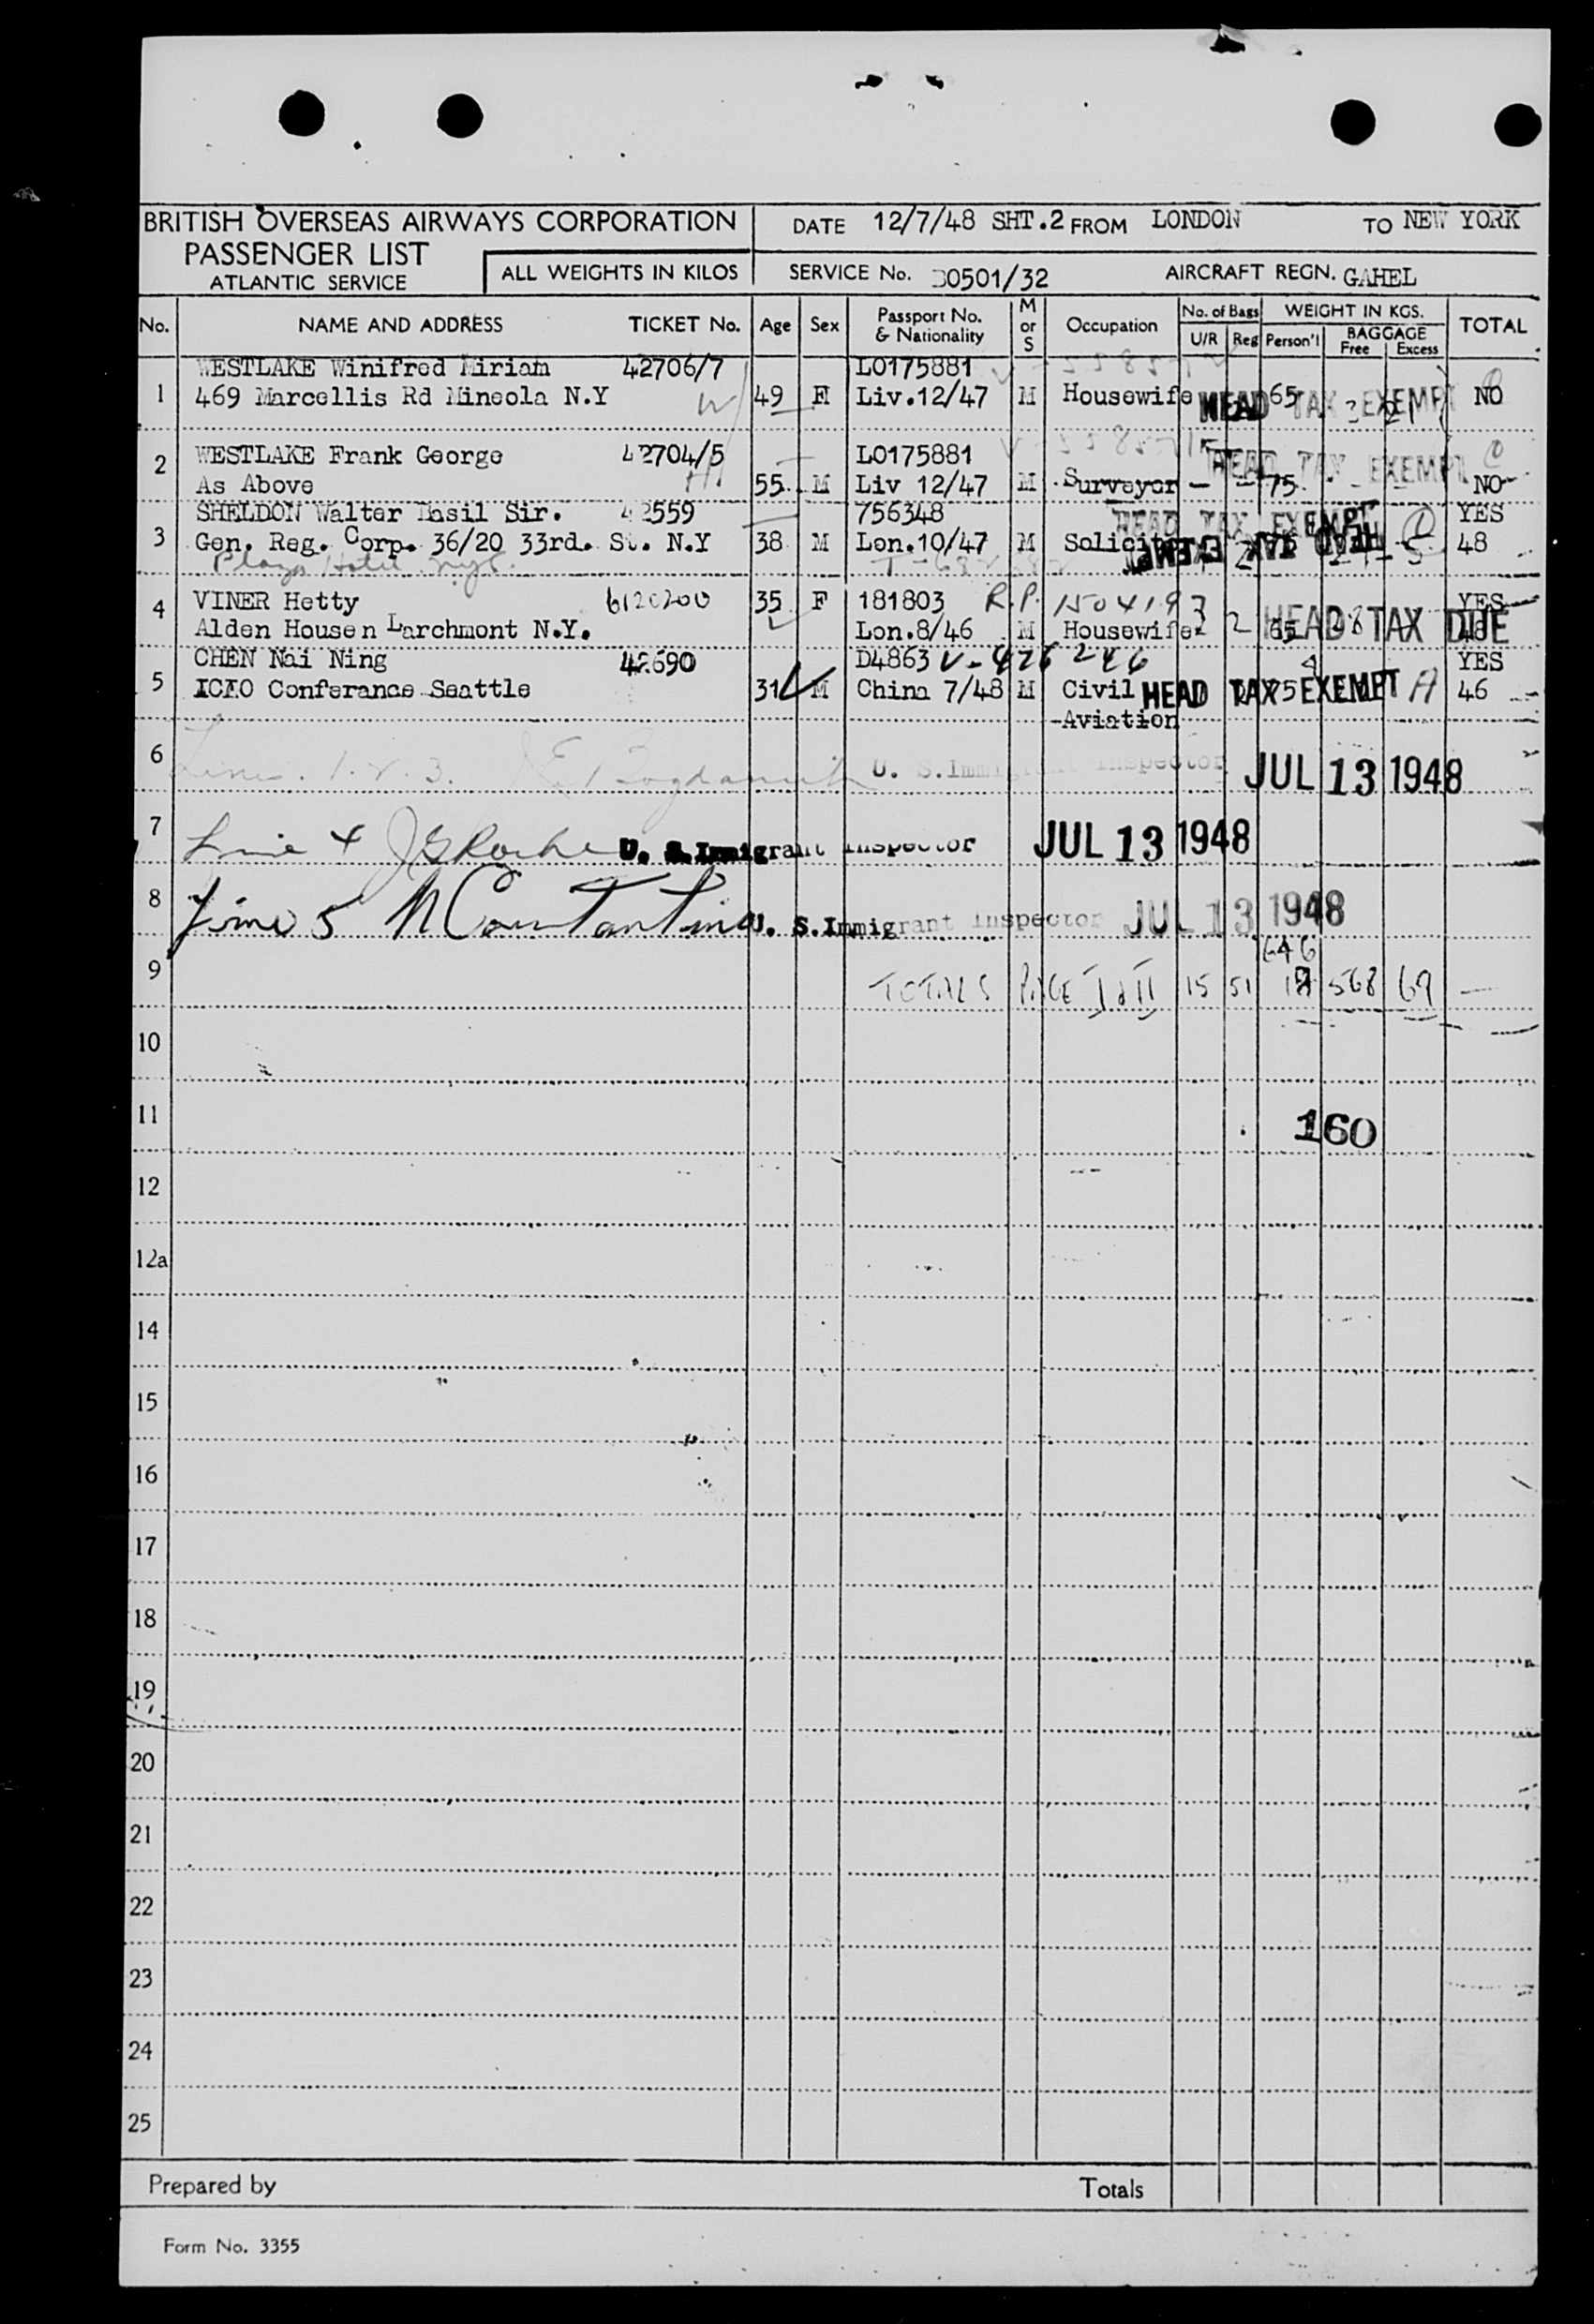 BRITISH OVERSEAS AIRWAYS CORPORATION
PASSENGER LIST
ATLANTIC SERVICE
ALL WEIGHTS IN KILOS
DATE 12/7/48 SHT.2 FROM LONDON TO NEW YORK
SERVICE No. 0501/32 AIRCRAFT REGN. GAHEL
No. NAME AND ADDRESS TICKET No. Age Sex Passport No. & Nationality M or S Occupation No. of Bags U/R Reg WEIGHT IN KGS. Person'l BAGGAGE Free Excess TOTAL
WESTLAKE Winifred Miriam 42706/7 LO175881
1 469 Marcellis Rd Mineola N.Y 49 F Liv.12/47 M Housewife 65 HEAD TAX EXEMPT NO
2 WESTLAKE Frank George 42704/5 LO175881 HEAD TAX EXEMPT
As Above 55 M Liv 12/47 M Surveyor - - 75 - - NO
SHELDON Walter Basil Sir. 42559 756348 HEAD TAX EXEMPT YES
3 Gen. Reg. Corp. 36/20 33rd. St. N.Y 38 M Lon.10/47 M HEAD TAX EXEMPT 48
Plaza Hotel NYC.
4 VINER Hetty 6120200 35 F 181803 R.P. 1504193 YES
Alden Housen Larchmont N.Y. Lon.8/46 M Housewife 2 65 HEAD TAX DUE
CHEN Nai Ning 42690 D4863 V-426246 YES
5 ICAO Conferance Seattle 31 M China 7/48 M Civil HEAD TAX EXEMPT A 46
Aviation
6 Lines 1.2.3. U. S.Immigrant Inspector JUL 13 1948
7 Line 4 J G Roche U. S.Immigrant Inspector JUL 13 1948
8 Line 5 N Constantine U. S.Immigrant Inspector JUL 13 1948
646
9 TOTALS PAGE I & II 15 51 568 69 —
10
11 160
12
12a
14
15
16
17
18
19
20
21
22
23
24
25
Prepared by Totals
Form No. 3355